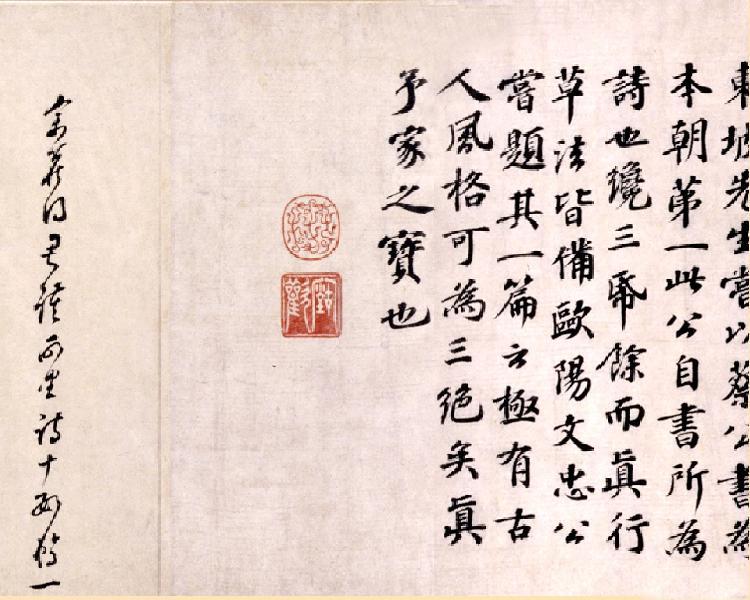 東坡先生嘗以蔡公書為
本朝第一此公自書所為
詩也纔三帋餘而眞行
草法皆備歐陽文忠公
嘗題其一篇云極有古
人風格可為三絕矣眞
予家之寶也
君謨詩十一